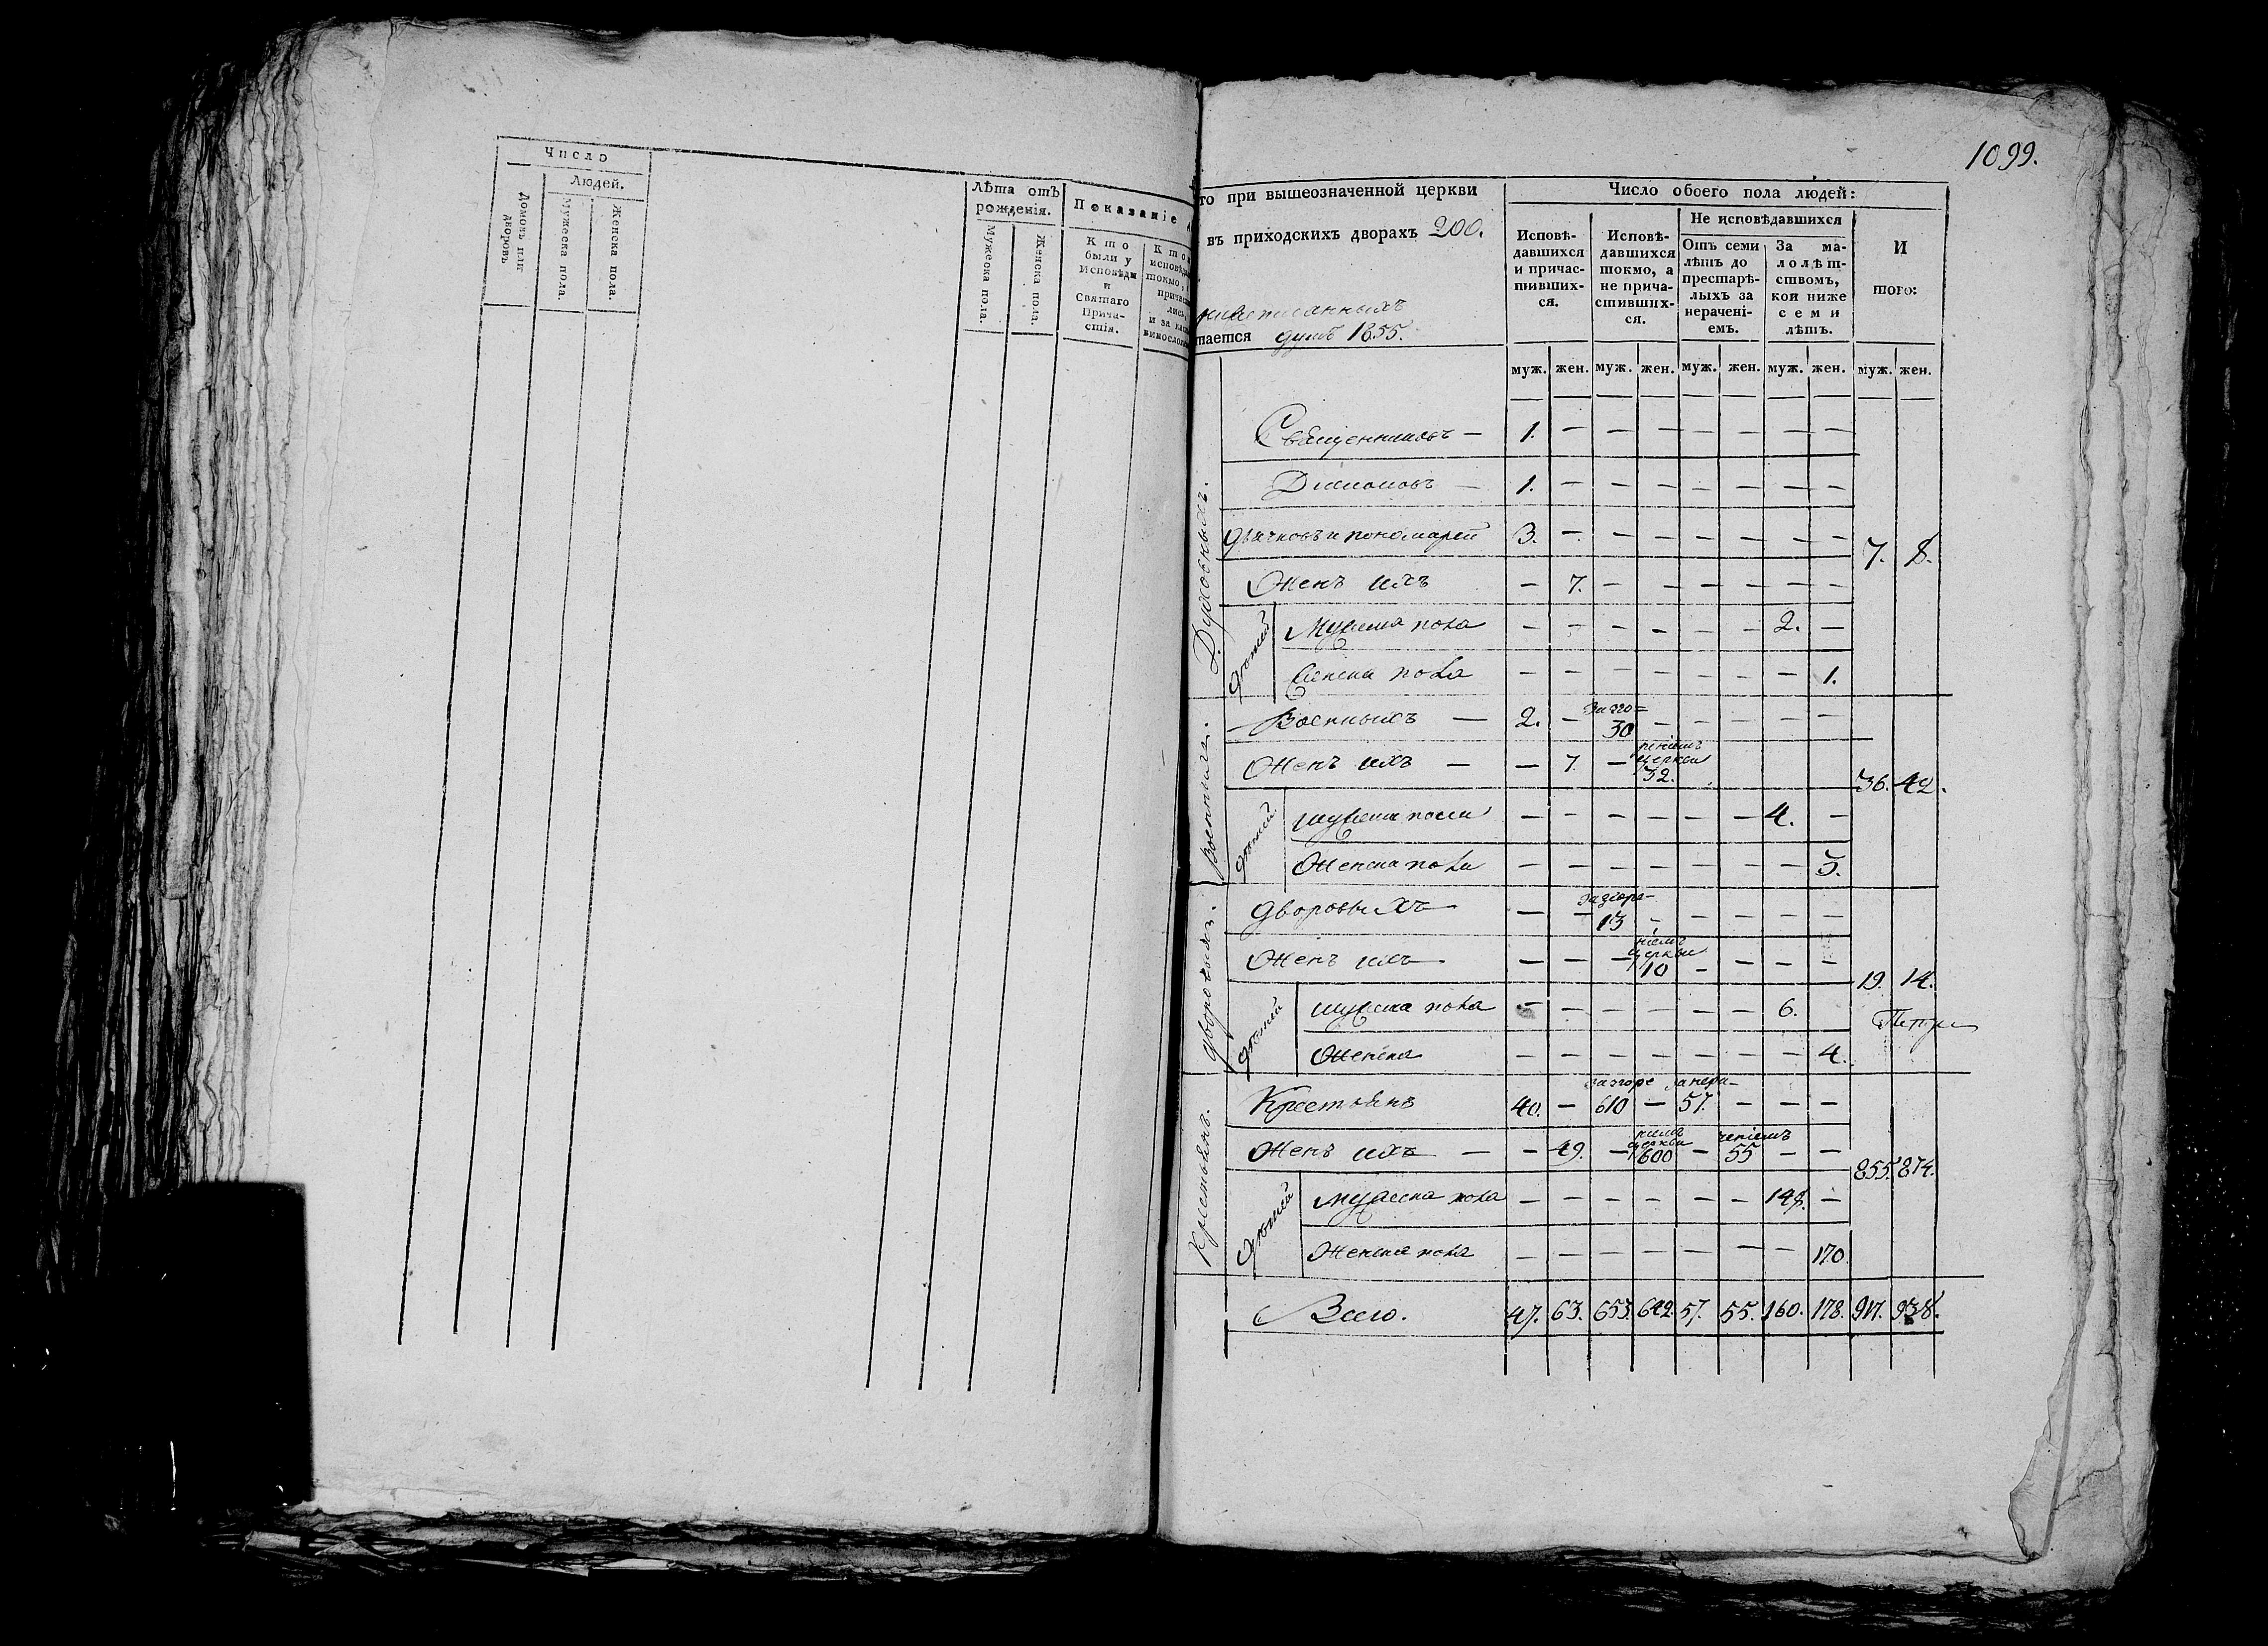 Число
Людей.
Домовъ или дворовъ
Мужеска пола.
Женска пола.
Лѣта отъ рожденія.
Мужеска пола.
Женска пола.
Показаніе
Кто были у Исповѣди и Святаго Прича- стія.
1099.
то при вышеозначенной церкви
въ приходскихъ дворахъ 200.
тается душъ 1855.
Число обоего пола людей:
Исповѣ- давшихся и причас- тивших- ся.
Исповѣ- давшихся токмо, а не прича- стивших- ся.
Не исповѣдавшихся
Отъ семи лѣтъ до престарѣ- лыхъ за нерачені- емъ.
За ма- лолѣт- ствомъ, кои ниже семи лѣтъ.
И того:
муж. жен. муж. жен. муж. жен. муж. жен. муж. жен.
Духовныхъ.
Священниковъ — 1. — — — — — — —
Діаконовъ — 1. — — — — — — —
Дьячковъ и пономарей 3. — — — — — — —
7. 8.
Женъ ихъ — 7. — — — — — —
Дѣтей
Мужеска пола — — — — — — 2. —
Женска пола — — — — — — — 1.
Военныхъ.
Военныхъ — 2. — За зго= 30 — — — — —
Женъ ихъ — — 7. — реніемъ церкви 32.
36. 42.
Дѣтей
мужеска пола — — — — — — 4. —
Женска пола — — — — — — — 3.
Дворовыхъ.
Дворовыхъ — — за згорѣ- 13 — — — — —
Женъ ихъ — — — ніемъ церкви 10 — — — —
19. 14.
Дѣтей
мужеска пола — — — — — — 6.
Женска — — — — — — — 4.
Крестьянъ.
Крестьянъ 40. — за згорѣ 610 — за нера- 57. — — —
Женъ ихъ — — 49. — ніемъ церкви 600 — ченіемъ 55 — —
855. 874.
Дѣтей
Мужеска пола — — — — — — 148. —
Женска пола — — — — — — — 170
Всего. 47. 63. 653. 642. 57. 55. 160. 178. 917. 938.